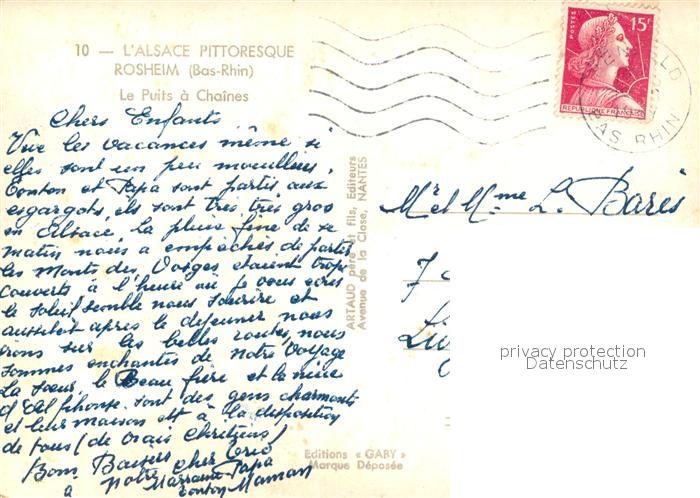 10 — L'ALSACE PITTORESQUE
ROSHEIM (Bas-Rhin)
Le Puits à Chaînes
Chers Enfants
Vive les vacances même si
elles sont un peu mouillées,
Tonton et Papa sont partis aux
esgargots, ils sont très très gros
en Alsace, la pluie fine de se
matin nous a empèchés de partir
les Monts des Vosges étaient trops
couverts à l'heure ou je vous écris
le soleil semble nous sourire et
aussitôt après le dejeuner nous
irons sur les belles routes, nous
sommes enchantés de notre voyage
La soeur, le Beau frère et la nièce
d'Alphonse sont des gens charmants
et leur maison est à la disposition
de tous (de vrais Chrétiens)
Bons Baisers
à notre cher trio
Marraine Papa
tonton Maman
ARTAUD père et fils, Editeurs
Avenue de la Close, NANTES
Editions « GABY »
Marque Déposée
POSTES
15F
REPUBLIQUE FRANÇAISE
BAS RHIN
Mr et Mme L. Barès
7
privacy protection
Datenschutz